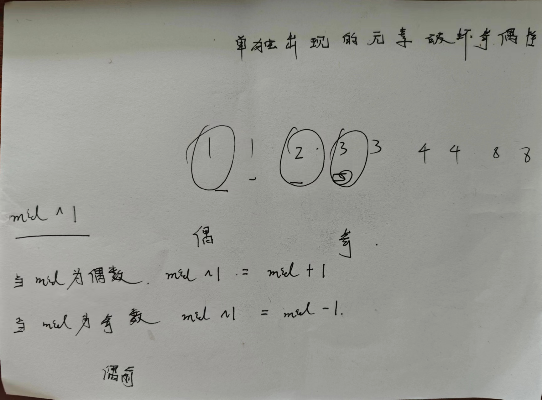 单独出现的元素破坏奇偶性
1 1 2 3 3 4 4 8 8
mid ^ 1
偶 奇.
当 mid 为偶数. mid ^ 1 = mid + 1
当 mid 为奇数 mid ^ 1 = mid - 1.